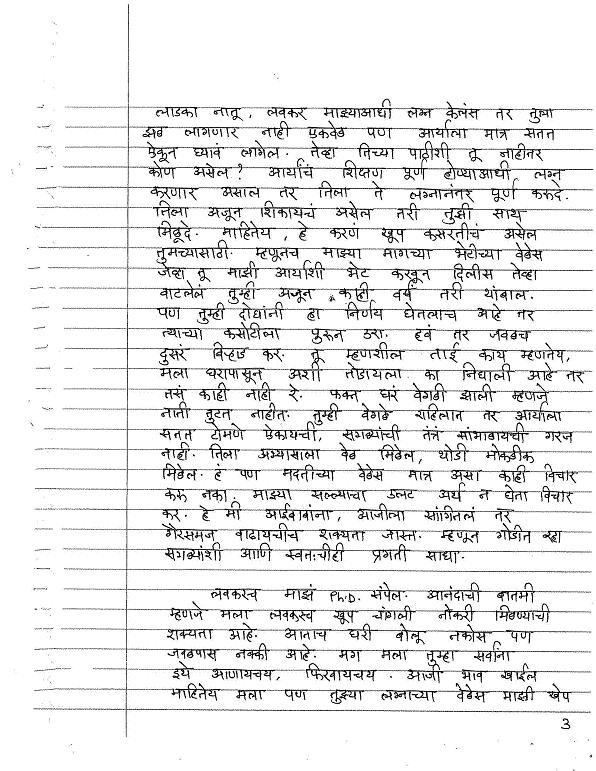 लाडका नातू, लवकर माझ्याआधी लग्न केलंस तर तुला
झळ लागणार नाही एकवेळ पण आर्याला मात्र सतत
ऐकून घ्यावं लागेल. तेव्हा तिच्या पाठीशी तू नाहीतर
कोण असेल? आर्याचं शिक्षण पूर्ण होण्याआधी लग्न
करणार असाल तर तिला ते लग्नानंतर पूर्ण करूदे.
तिला अजून शिकायचं असेल तरी तुझी साथ
मिळूदे. माहितेय, हे करणं खूप कसरतीचं असेल
तुमच्यासाठी. म्हणूनच माझ्या मागच्या भेटीच्या वेळेस
जेव्हा तू माझी आर्याशी भेट करवून दिलीस तेव्हा
वाटलेलं तुम्ही अजून काही वर्षं तरी थांबाल.
पण तुम्ही दोघांनी हा निर्णय घेतलाच आहे तर
त्याच्या कसोटीला पुरून उरा. हवं तर जवळच
दुसरं बिऱ्हाड कर. तू म्हणशील ताई काय म्हणतेय,
मला घरापासून अशी तोडायला का निघाली आहे तर
तसं काही नाही रे. फक्त घरं वेगळी झाली म्हणजे
नाती तुटत नाहीत. तुम्ही वेगळे राहिलात तर आर्याला
सतत टोमणे ऐकायची, सगळ्यांची तंत्रं सांभाळायची गरज
नाही. तिला अभ्यासाला वेळ मिळेल, थोडी मोकळीक
मिळेल. हं पण मदतीच्या वेळेस मात्र असा काही विचार
करू नका. माझ्या सल्ल्याचा उलट अर्थ न घेता विचार
कर. हे मी आईबाबांना, आजीला सांगितलं तर
गैरसमज वाढायचीच शक्यता जास्त. म्हणून गोडीत रहा
सगळ्यांशी आणि स्वतःचीही प्रगती साधा.
लवकरच माझं Ph.D. संपेल. आनंदाची बातमी
म्हणजे मला लवकरच खूप चांगली नोकरी मिळण्याची
शक्यता आहे. आताच घरी बोलू नकोस पण
जवळपास नक्की आहे. मग मला तुम्हा सर्वांना
इथे आणायचय, फिरवायचय. आजी भाव खाईल
माहितेय मला पण तुझ्या लग्नाच्या वेळेस माझी खेप
3